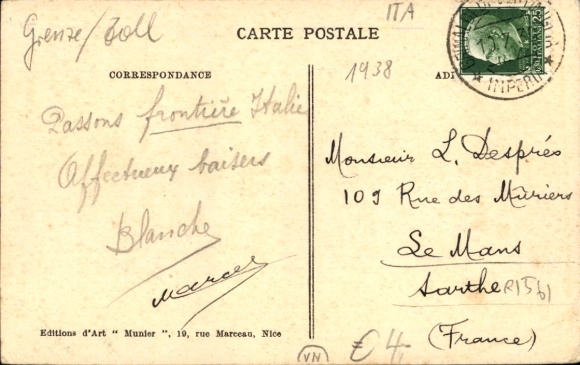 Grenze/Zoll
ITA
CARTE POSTALE
25
IMPERIA
CORRESPONDANCE
1938
AD
Passons frontière Italie
Affectueux baisers
Blanche
Marcel
Monsieur L. Després
109 Rue des Mûriers
Le Mans
Sarthe
(France)
Editions d'Art " Munier ", 19, rue Marceau, Nice
VN
€ 4,